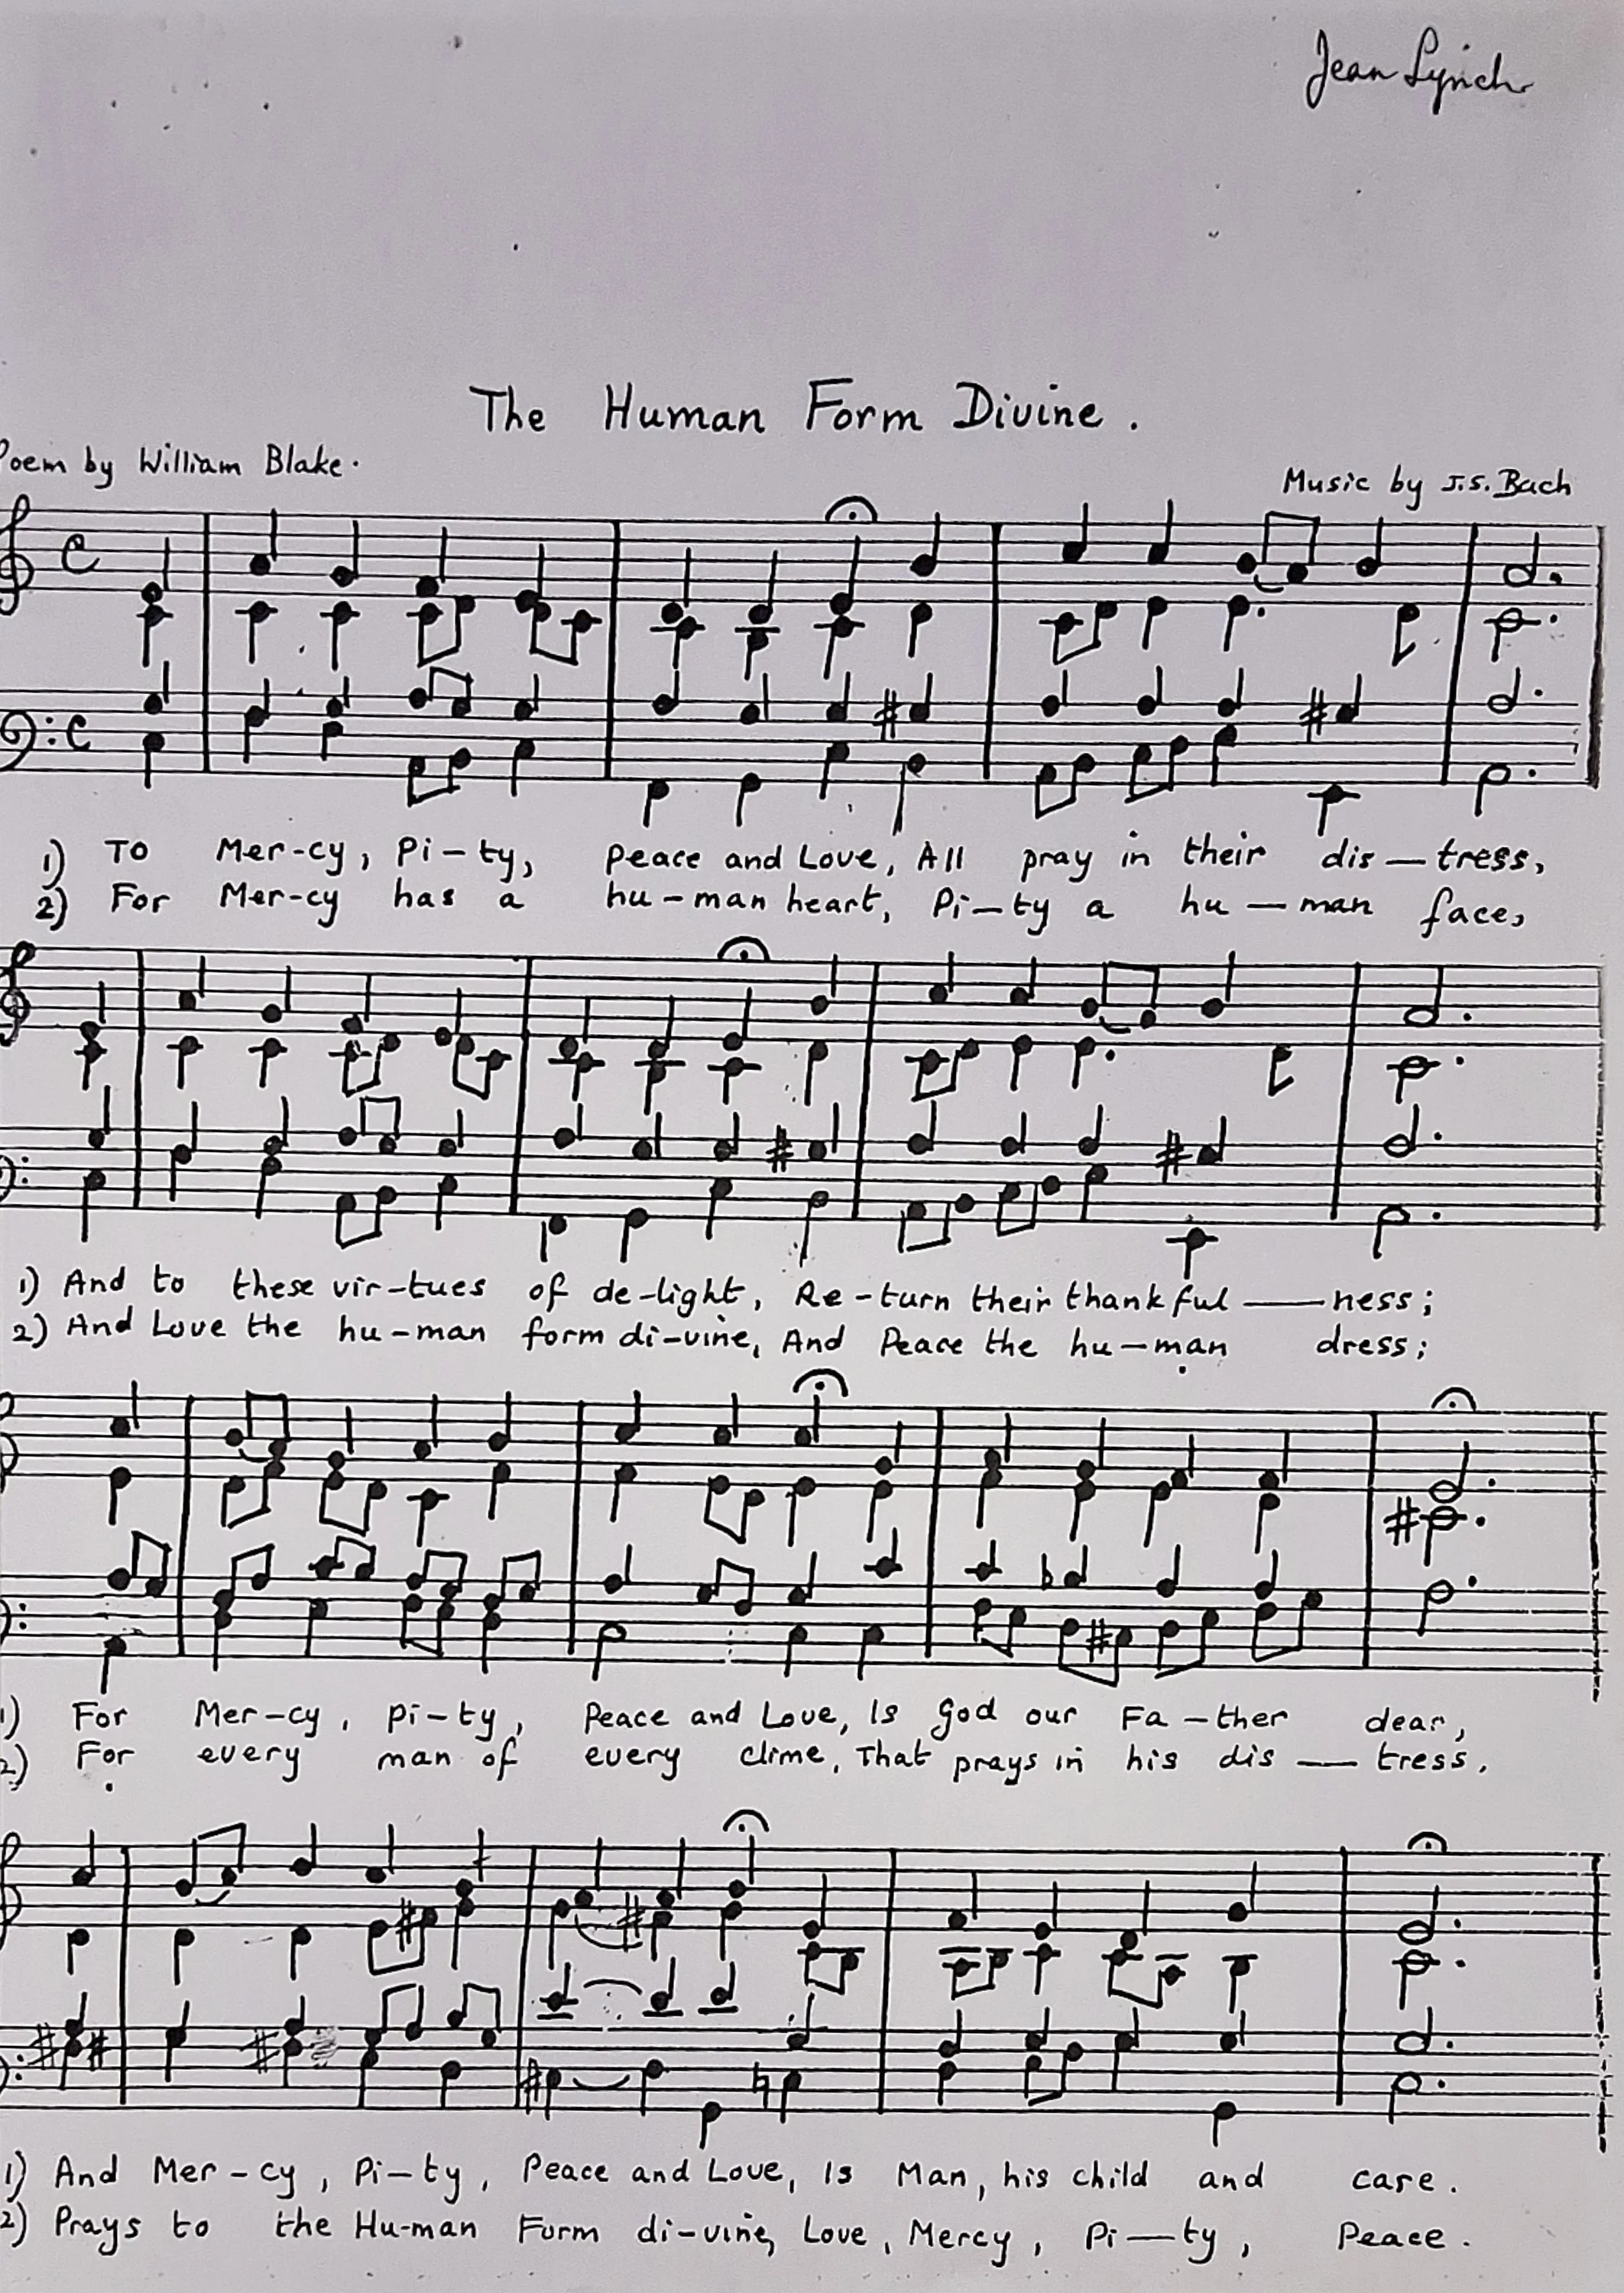 Jean Lynch
The Human Form Divine.
Poem by William Blake.
Music by J.S. Bach
1) To Mer-cy, Pi-ty, Peace and Love, All pray in their dis-tress,
2) For Mer-cy has a hu-man heart, Pi-ty a hu-man face,
1) And to these vir-tues of de-light, Re-turn their thankful-ness;
2) And Love the hu-man form di-vine, And Peace the hu-man dress;
1) For Mer-cy, Pi-ty, Peace and Love, Is God our Fa-ther dear,
2) For every man of every clime, That prays in his dis-tress.
1) And Mer-cy, Pi-ty, Peace and Love, Is Man, his child and care.
2) Prays to the Hu-man Form di-vine, Love, Mercy, Pi-ty, Peace.